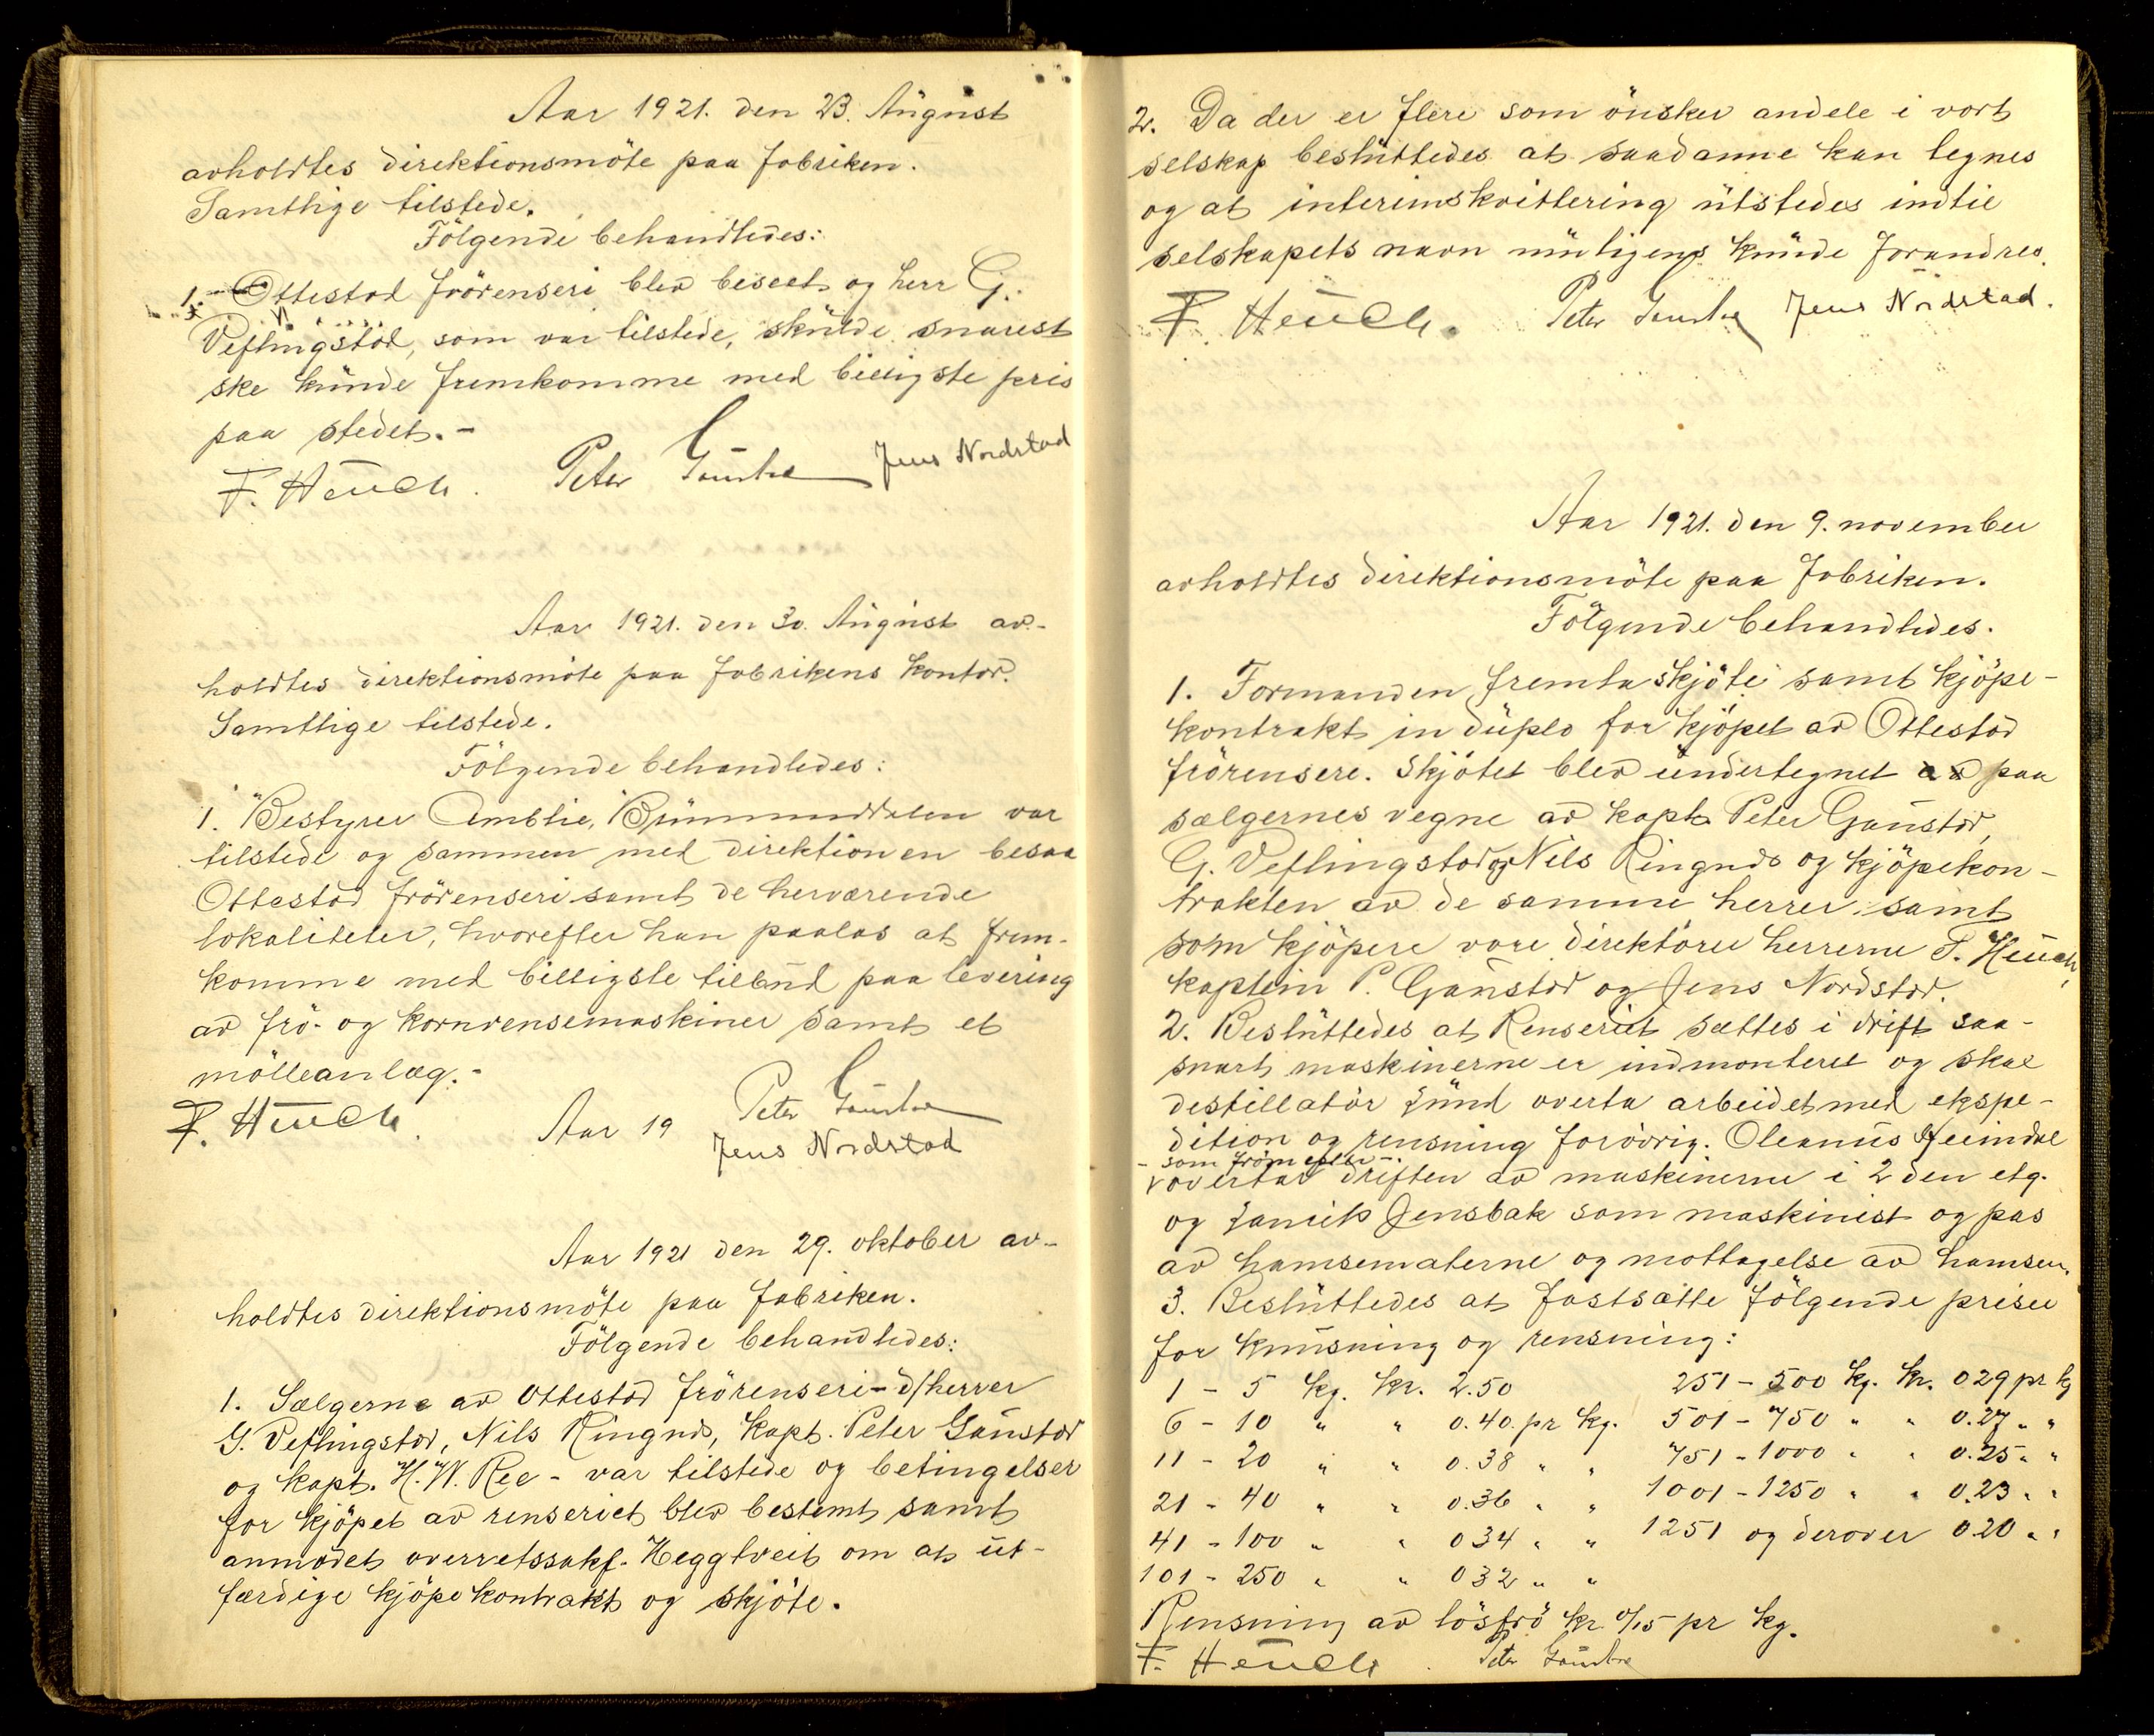 Aar 1921. den 23. August
avholdtes direktionsmöte paa fabriken.
Samtlige tilstede.
Fölgende behandledes:
1. Ottestad frörenseri blev beseet og herr G.
Veflingstad, som var tilstede, skulde snarest
ske kunde fremkomme med billigste pris
paa stedet.-
F. Heuch. Peter Gaustad Jens Nordstad
Aar 1921. den 30. August av-
holdtes direktionsmöte paa fabrikens kontor.
Samtlige tilstede.
Fölgende behandledes:
1. Bestyrer Amblie, Brummunddalen var
tilstede og sammen med direktionen besaa
Ottestad frörenseri samt de herværende
lokaliteter, hvorefter han paalas at frem-
komme med billigste tilbud paa levering
av frö- og kornrensemaskiner samt et
mölleanlæg.-
F. Heuch. Aar 19 Peter Gaustad
Jens Nordstad
Aar 1921 den 29. oktober av-
holdtes direktionsmöte paa fabriken.
Fölgende behandledes:
1. Sælgerne av Ottestad frörenseri - d/herrer
G. Veflingstad, Nils Ringnes, Kapt. Peter Gaustad
og Kapt. H. W. Ree - var tilstede og betingelser
for kjöpet av renseriet blev bestemt samt
anmodet overretssakf. Heggtveit om at ut-
færdige kjöpekontrakt og skjöte.
2. Da der er flere som önsker andele i vort
selskap besluttedes at saadanne kan tegnes
og at interimskvittering utstedes indtil
selskapets navn muligens kunde forandres.
F. Heuch. Peter Gaustad Jens Nordstad.
Aar 1921. den 9. november
avholdtes direktionsmöte paa fabriken.
Fölgende behandledes.
1. Formanden fremla skjöte samt kjöpe-
kontrakt in duplo for kjöpet av Ottestad
frörenseri. Skjötet blev undertegnet av paa
sælgernes vegne av kapt. Peter Gaustad,
G. Veflingstad og Nils Ringnes og kjöpekon-
trakten av de samme herrer, samt
som kjöpere vore direktörer herrerne F. Heuch,
kaptein P. Gaustad og Jens Nordstad.
2. Besluttedes at Renseriet sættes i drift saa-
snart maskinerne er indmonteret og skal
destillatör Lund overta arbeidet med ekspe-
dition og rensning forövrig. Oleanus Heimdal
- som frömester -
overtar driften av maskinerne i 2den etg.
og Jensbak som maskinist og pas
av hamsematerne og mottagelse av hamsen.
3. Besluttedes at fastsætte fölgende priser
for knusning og rensning:
1 - 5 kg. Kr. 2.50 251 - 500 kg. Kr. 0 29 pr kg
6 - 10 " " 0.40 pr kg. 501 - 750 " " 0.27 " "
11 - 20 " " 0.38 " " 751 - 1000 " " 0.25 " "
21 - 40 " " 0.36 " " 1001 - 1250 " " 0.23 " "
41 - 100 " " 0 34 " " 1251 og derover 0.20 " "
101 - 250 " " 0 32 " "
Rensning av lösfrö kr 0/15 pr kg.
F. Heuch. Peter Gaustad